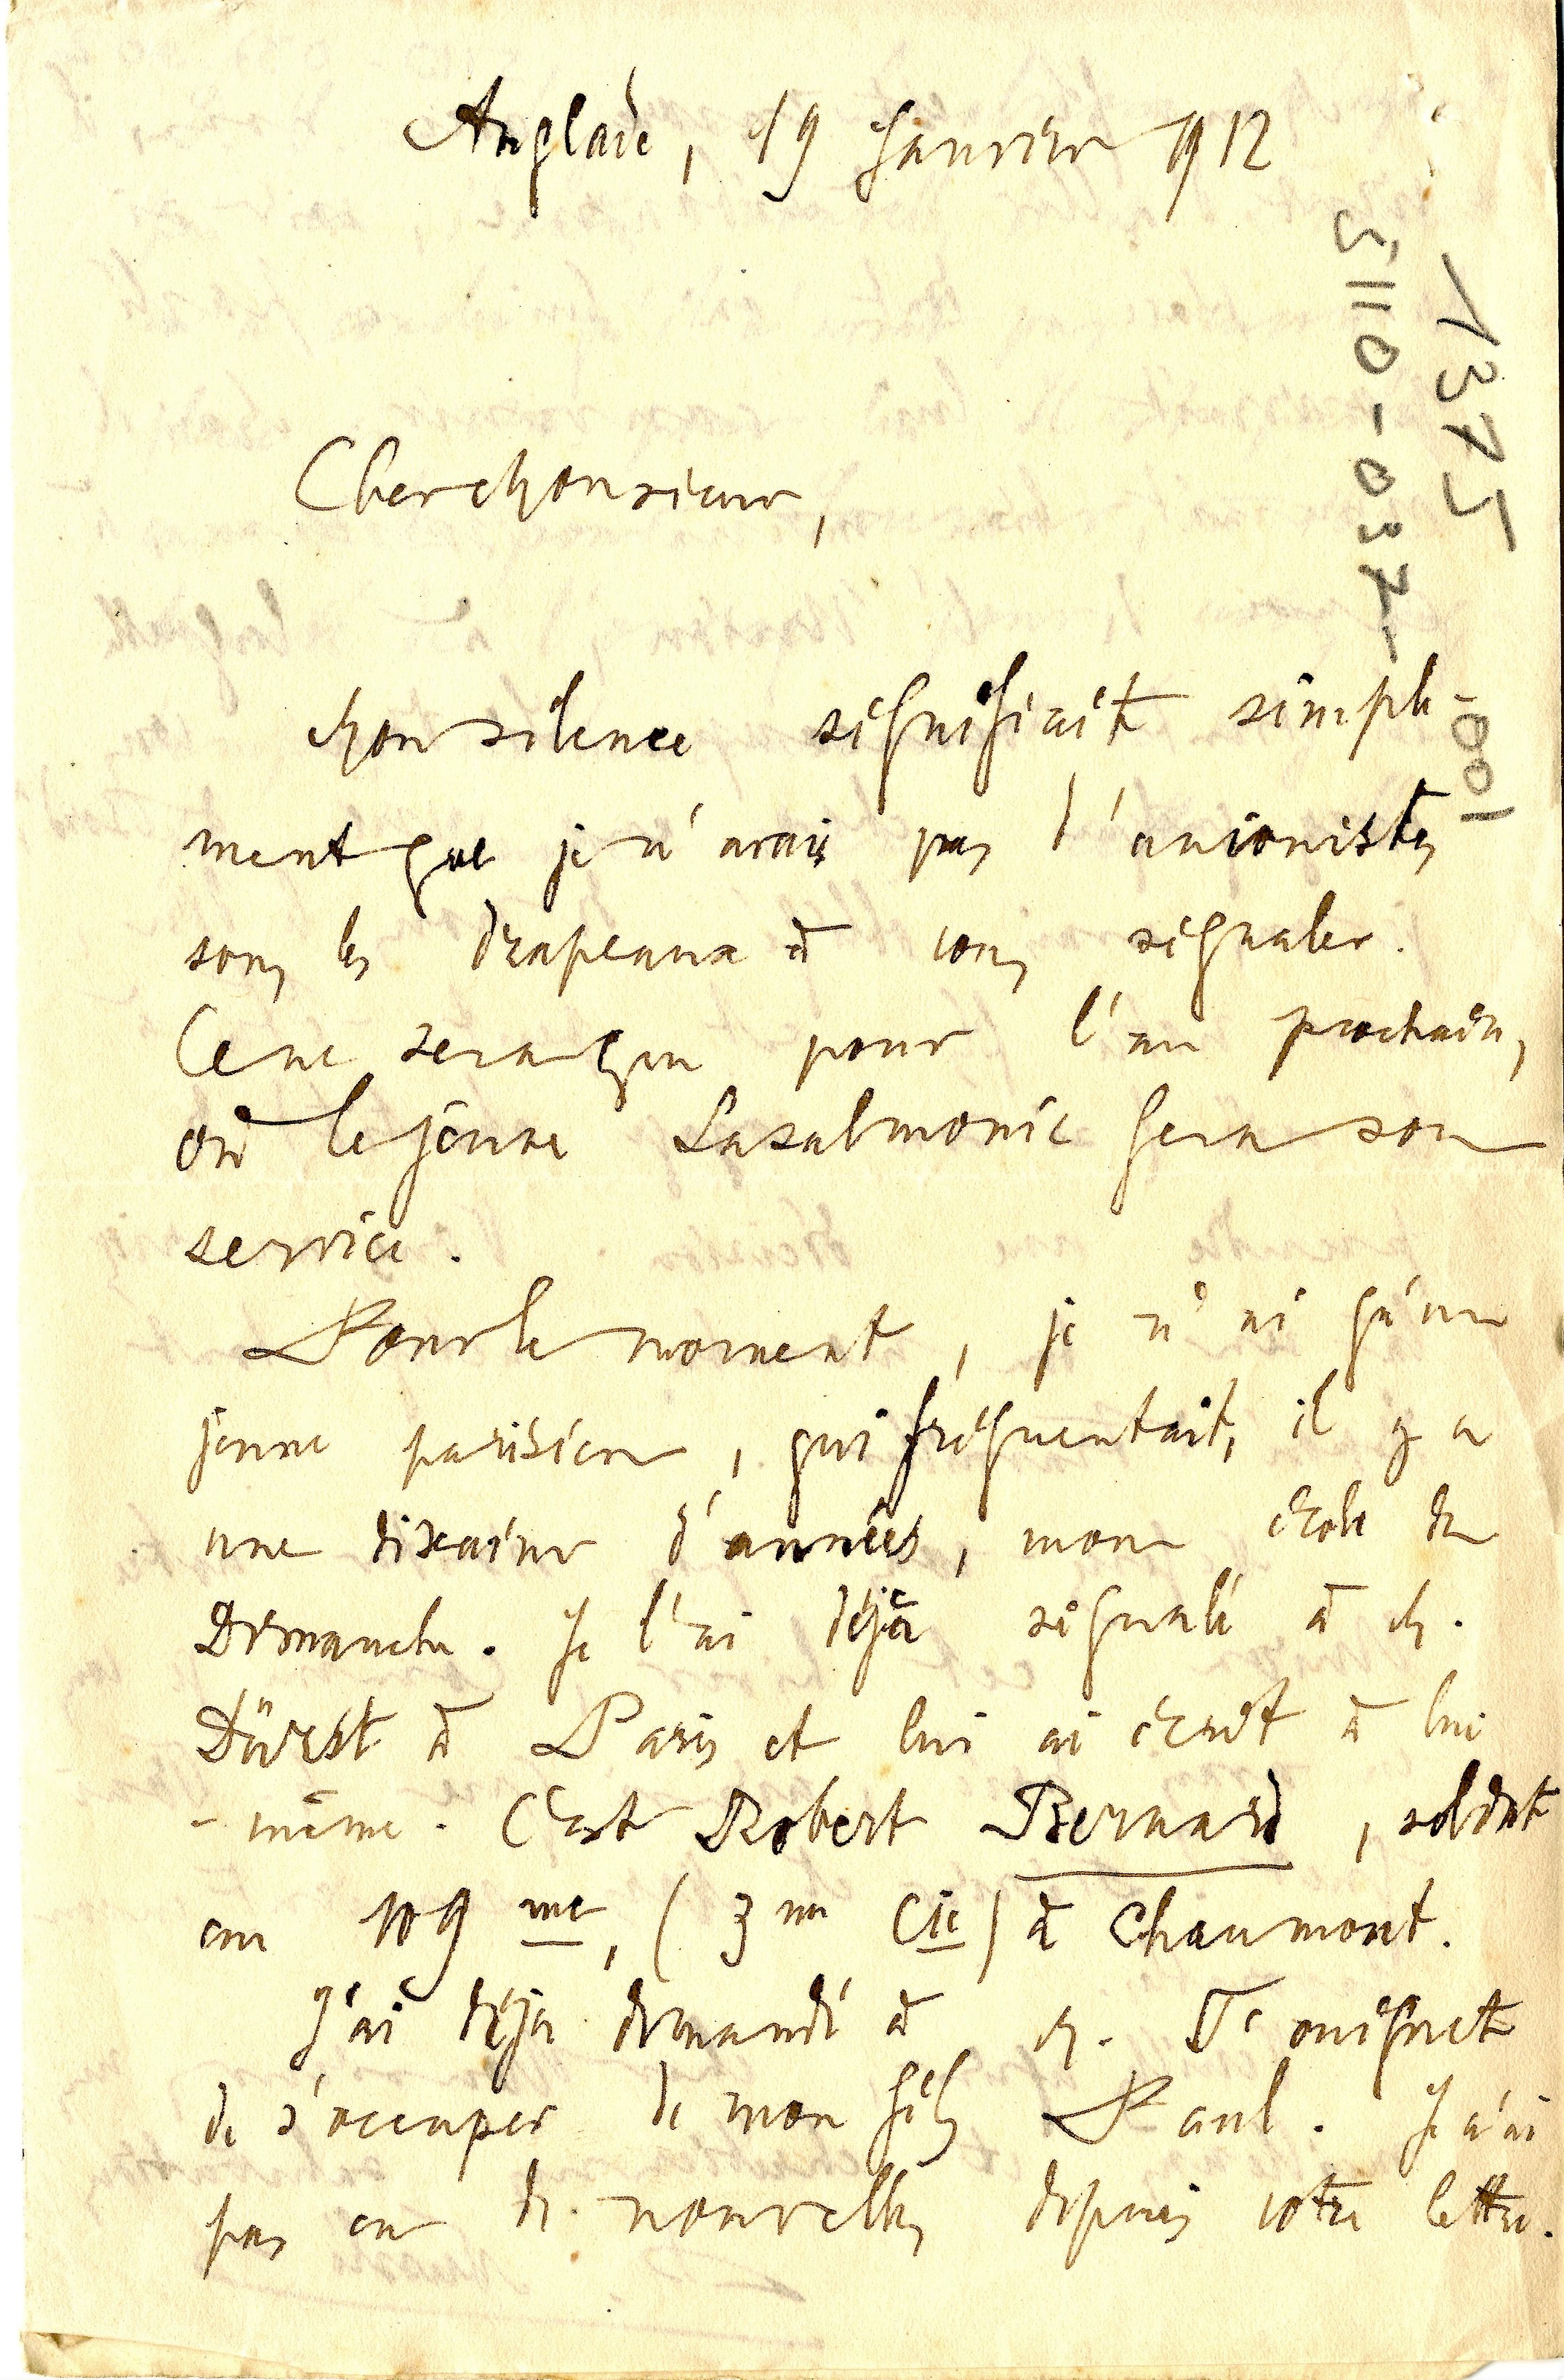 Anglade, 19 Janvier 1912
1375
5110-037-
001
Cher Monsieur,
Mon silence signifiait simple-
ment que je n'avais pas d'unionistes
sous les drapeaux à vous signaler.
Ce ne sera que pour l'an prochain,
où le jeune Lasalmonie fera son
service.
Pour le moment, je n'ai qu'un
jeune parisien, qui fréquentait, il y a
une dizaine d'années, mon école du
Dimanche. Je l'ai déjà signalé à M.
Dürst à Paris et lui ai écrit à lui
-même. C'est Robert Bernard, soldat
au 109me, (3me Cie) à Chaumont.
J'ai déjà demandé à M.
de s'occuper de mon fils Paul. Je n'ai
pas eu de nouvelles depuis votre lettre.